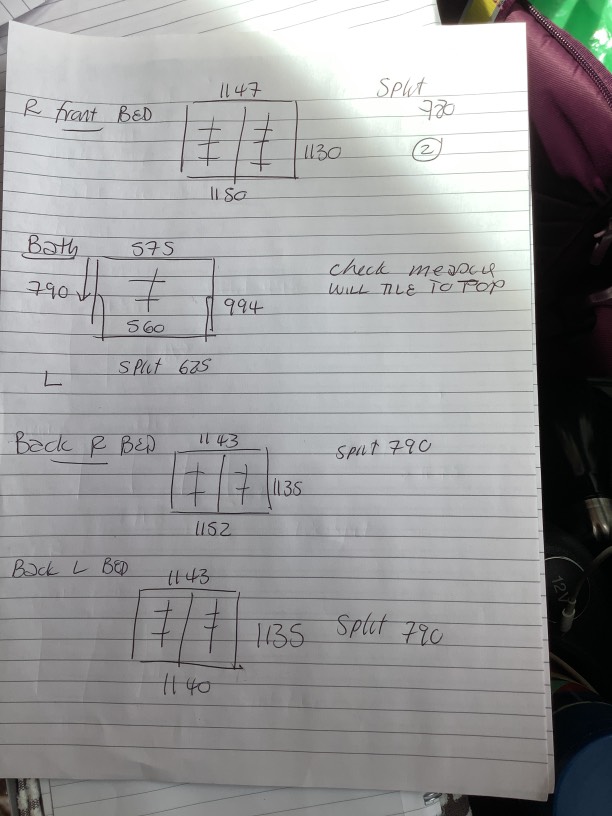 1147
Split
R front BED
780
1130
2
1150
Bath
575
check measure
790
WILL TILE TO TOP
994
560
Split 625
L
Back R BED
1143
Split 790
1135
1152
Back L BED
1143
1135
Split 790
1140
12V